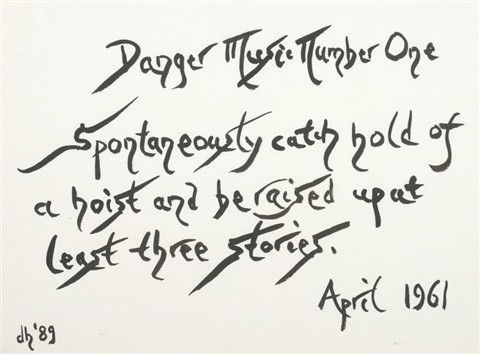 Danger Music Number One
Spontaneously catch hold of
a hoist and be raised up at
least three stories.
April 1961
dh '89